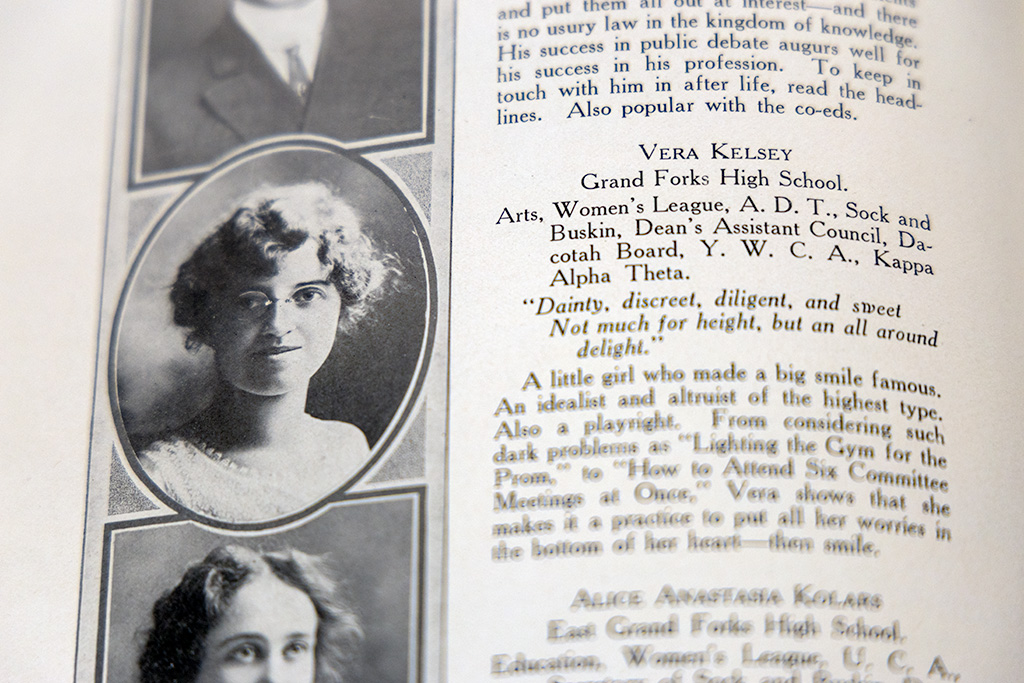 and put them all out at interest—and there
is no usury law in the kingdom of knowledge.
His success in public debate augurs well for
his success in his profession. To keep in
touch with him in after life, read the head-
lines. Also popular with the co-eds.
VERA KELSEY
Grand Forks High School.
Arts, Women's League, A. D. T., Sock and
Buskin, Dean's Assistant Council, Da-
cotah Board, Y. W. C. A., Kappa
Alpha Theta.
"Dainty, discreet, diligent, and sweet
Not much for height, but an all around
delight."
A little girl who made a big smile famous.
An idealist and altruist of the highest type.
Also a playright. From considering such
dark problems as "Lighting the Gym for the
Prom," to "How to Attend Six Committee
Meetings at Once," Vera shows that she
makes it a practice to put all her worries in
the bottom of her heart—then smile.
ALICE ANASTASIA KOLARS
East Grand Forks High School.
Education, Women's League, U. C. A.,
of Sock and